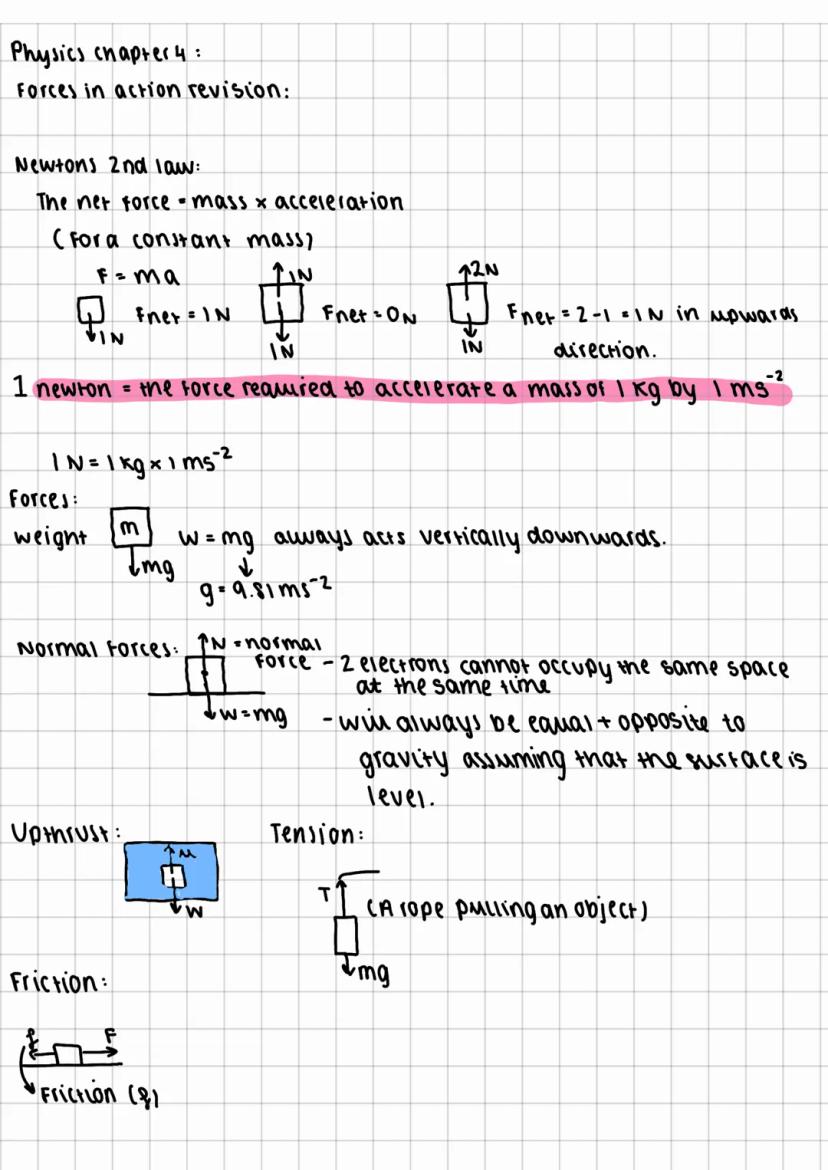 Physics chapter 4:
Forces in action revision:
Newtons 2nd law:
The net force = mass × acceleration
(For a constant mass)
F = ma
1N
Fnet = 1N
1N
1N
Fnet = 0N
2N
1N
Fnet = 2-1 = 1N in upwards
direction.
1 newton = the force required to accelerate a mass of 1 kg by 1 ms⁻²
1N = 1 kg × 1 ms⁻²
Forces:
weight
m
mg
W = mg always acts vertically downwards.
g = 9.81 ms⁻²
Normal Forces:
N = normal
force
W = mg
- 2 electrons cannot occupy the same space
at the same time
- will always be equal + opposite to
gravity assuming that the surface is
level.
Upthrust:
u
W
Tension:
T
(A rope pulling an object)
mg
Friction:
f
F
Friction (f)